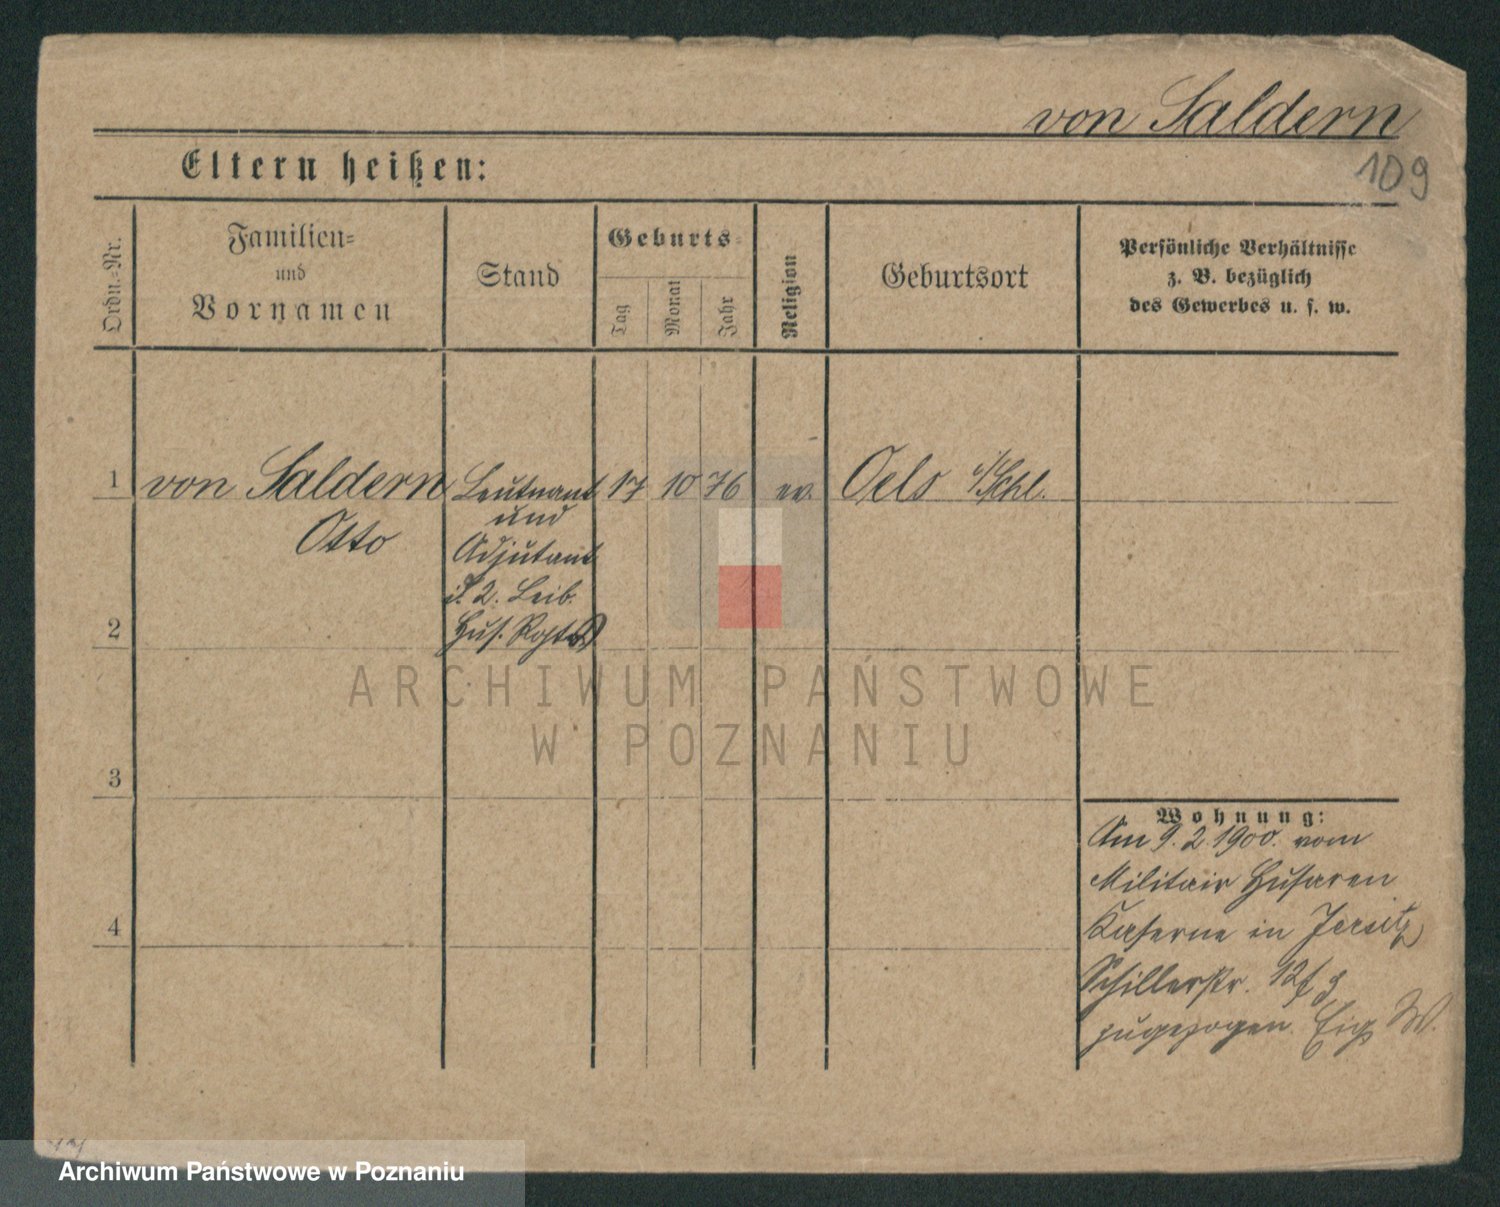 von Saldern
109
Eltern heißen:
Ordn.=Nr.
Familien=
und
Vornamen
Stand
Geburts=
Tag
Monat
Jahr
Religion
Geburtsort
Persönliche Verhältnisse
z. B. bezüglich
des Gewerbes u. s. w.
1 von Saldern Leutnant 17 10 76 ev. Oels i/Schl.
Otto und
Adjutant
i. 2. Leib.
2 Hus. Rgts
ARCHIWUM PAŃSTWOWE
W POZNANIU
3
Wohnung:
Am 9.2.1900. vom
Militair Husaren
4 Kaserne in Jersitz
Schillerstr.
zugezogen. Eig W.
Archiwum Państwowe w Poznaniu